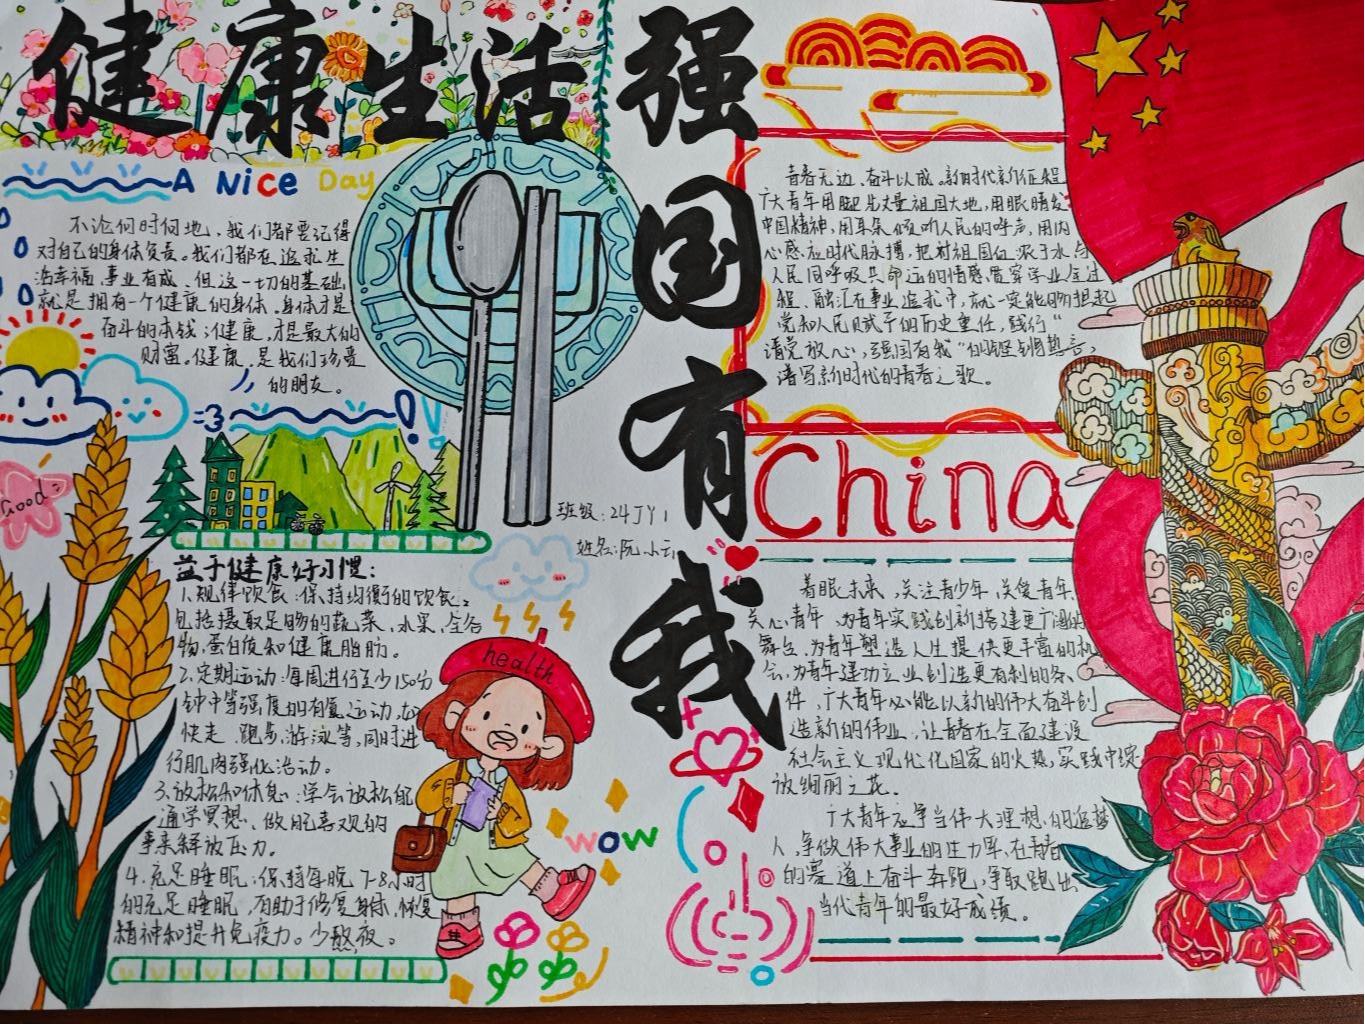 健康生活
强国有我
A Nice Day
不论何时何地，我们都要记得
对自己的身体负责。我们都在追求生
活幸福，事业有成，但这一切的基础
就是拥有一个健康的身体。身体才是
奋斗的本钱；健康，才是最大的
财富，健康，是我们珍贵
的朋友。
Good
班级：24JY1
姓名：阮小云
益于健康好习惯：
1、规律饮食：保持均衡的饮食，
包括摄取足够的蔬菜、水果、全谷
物、蛋白质和健康脂肪。
2、定期运动：每周进行至少150分
钟中等强度的有氧运动，如
快走、跑步、游泳等，同时进
行肌肉强化活动。
3、放松和休息：学会放松，能
通学冥想、做自己喜欢的
事来释放压力。
4、充足睡眠：保持每晚7-8小时
的充足睡眠，有助于修复身体，恢复
精神和提升免疫力。少熬夜。
health
wow
青春无边，奋斗以成。新时代新征程
广大青年用脚步丈量祖国大地，用眼睛发
中国精神，用耳朵倾听人民的呼声，用内
心感应时代脉搏，把对祖国血浓于水、与
人民同呼吸共命运的情感贯穿学业全过
程、融汇在事业追求中，就一定能够担起
党和人民赋予的历史重任，践行“
请党放心，强国有我”的铿锵誓言，
谱写新时代的青春之歌。
China
着眼未来，关注青少年，关爱青年，
关心青年，为青年实践创新搭建更广阔的
舞台，为青年塑造人生提供更丰富的机
会，为青年建功立业创造更有利的条
件，广大青年必能以新的伟大奋斗创
造新的伟业，让青春在全面建设
社会主义现代化国家的火热实践中绽
放绚丽之花。
广大青年应争当伟大理想的追梦
人，争做伟大事业的生力军，在青春
的赛道上奋斗奔跑，争取跑出
当代青年的最好成绩。